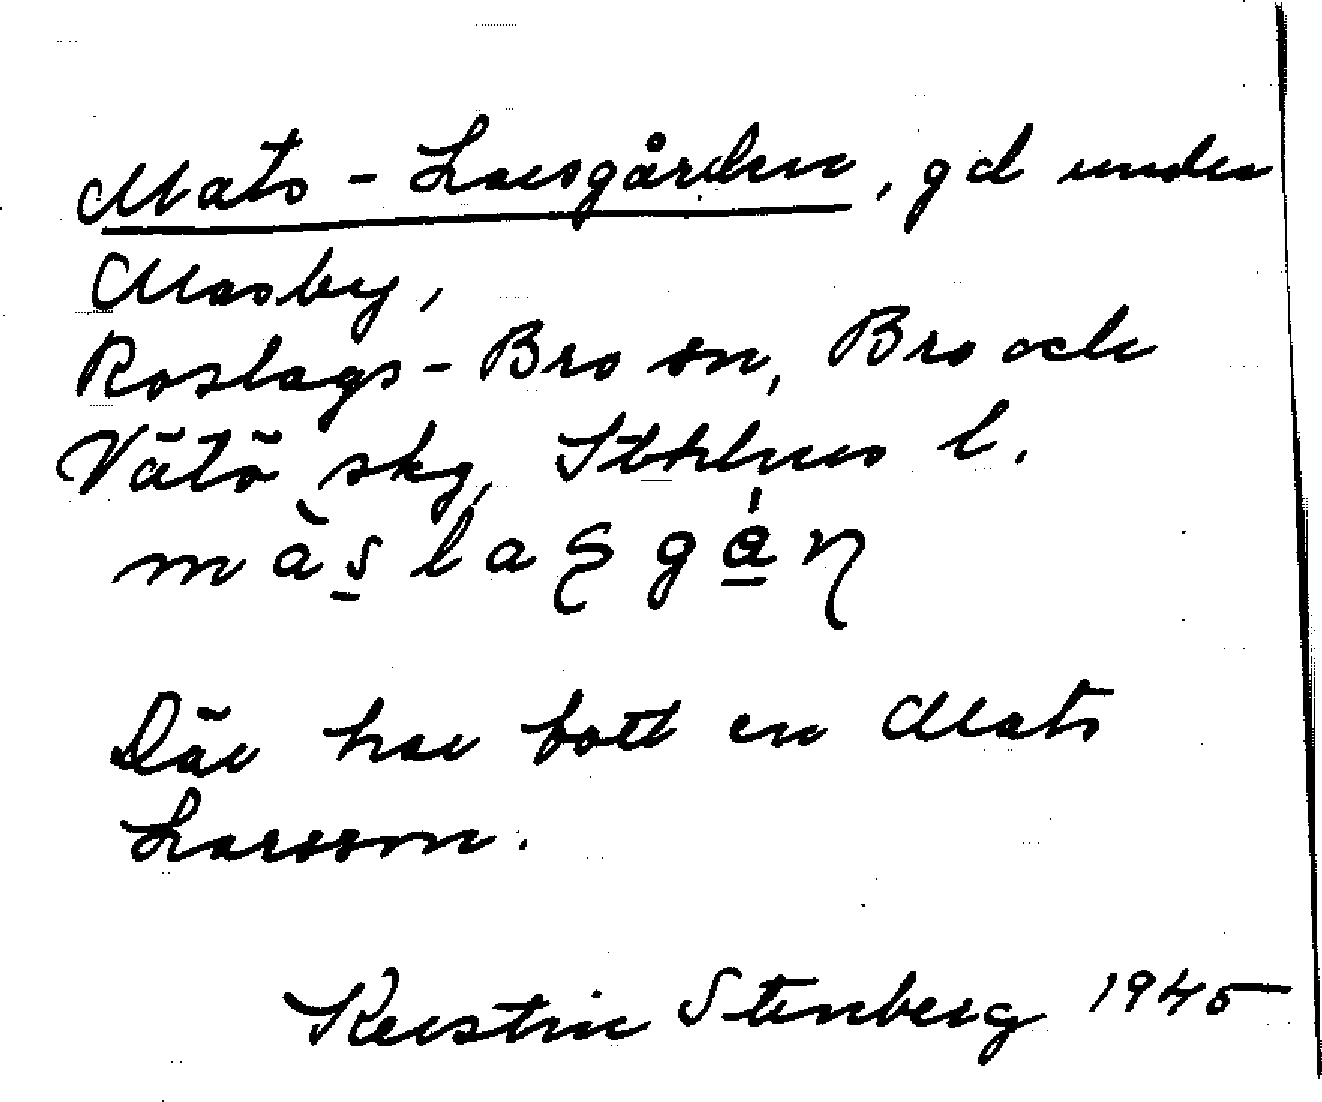 Mats-Larsgården, gd under
Masby,
Roslags-Bro sn, Bro och
Vätö skg, Stkhlms l.
màs̠laʂgá̠ɳ
Där har bott en Mats
Larsson.
Kerstin Stenberg 1945